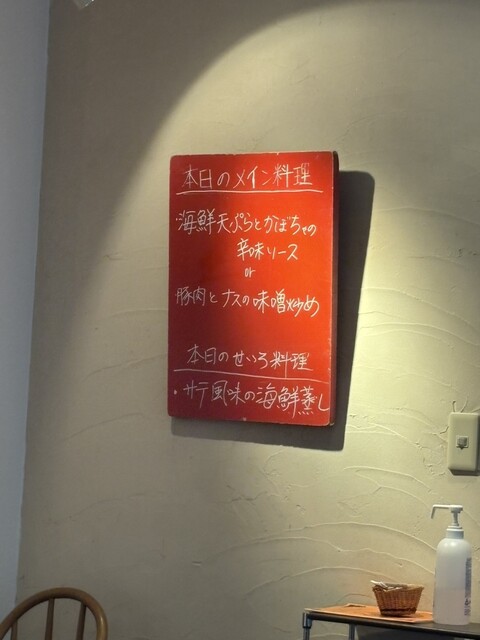 本日のメイン料理
海鮮天ぷらとかぼちゃの
辛味ソース
or
豚肉とナスの味噌炒め
本日のせいろ料理
・サテ風味の海鮮蒸し